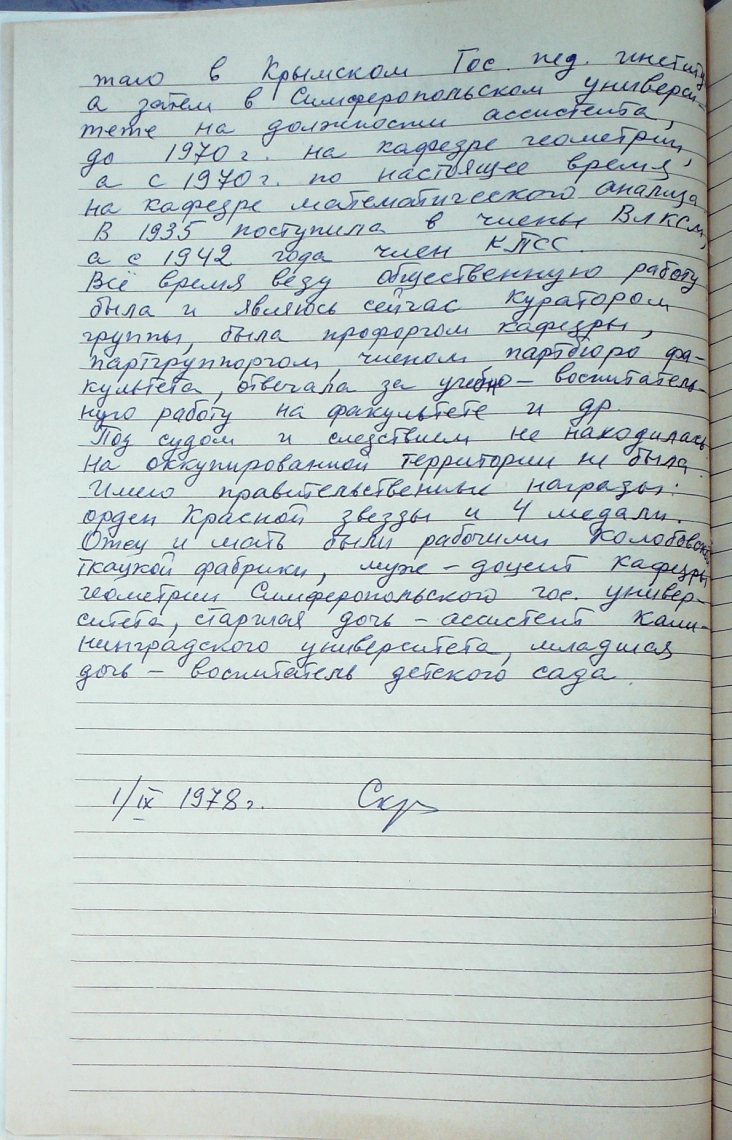 таю в Крымском Гос. пед. институ
а затем в Симферопольском универси-
тете на должности ассистента,
до 1970 г. на кафедре геометрии,
а с 1970 г. по настоящее время
на кафедре математического анализа
В 1935 поступила в члены ВЛКСМ,
а с 1942 года член КПСС.
Всё время веду общественную работу
была и являюсь сейчас куратором
группы, была профоргом кафедры,
партгруппоргом, членом партбюро фа-
культета, отвечала за учебно-воспитатель-
ную работу на факультете и др.
Под судом и следствием не находилась
На оккупированной территории не была.
Имею правительственные награды:
орден Красной звезды и 4 медали.
Отец и мать были рабочими Колобовской
ткацкой фабрики, муж - доцент кафедры
геометрии Симферопольского гос. универ-
ситета, старшая дочь - ассистент Кали-
нинградского университета, младшая
дочь - воспитатель детского сада.
1/IX 1978 г. Скр